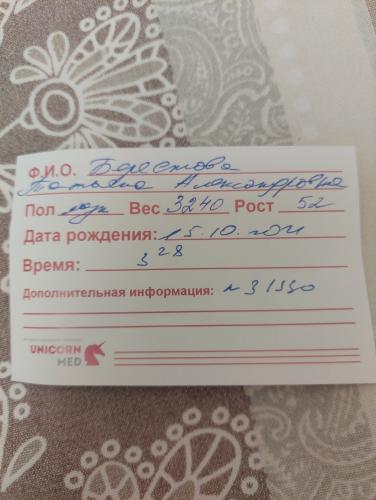 Ф.И.О. Берестова
Татьяна Александровна
Пол муж Вес 3240 Рост 52
Дата рождения: 15.10.
Время: 3 28
Дополнительная информация:
UNICORN
MED